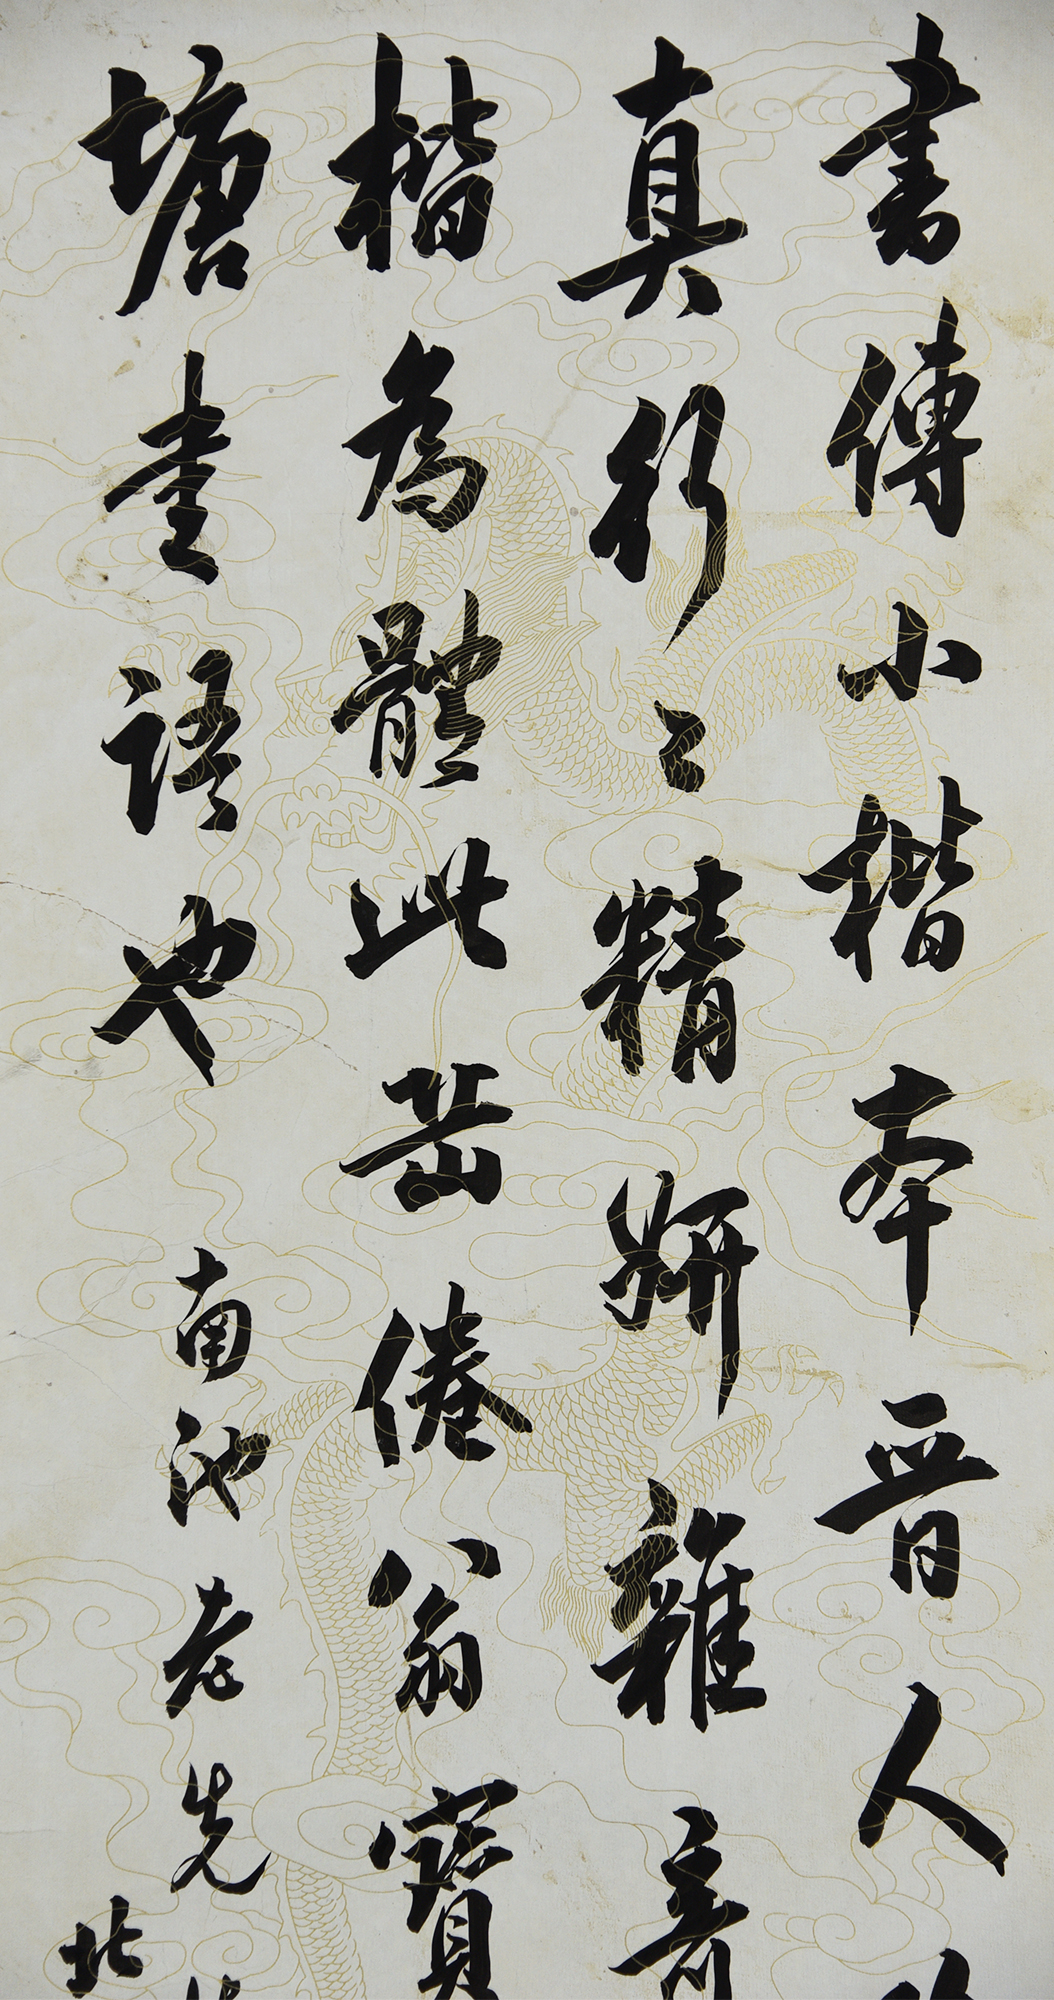 書傳小楷本晉人
真行〻精妍雜
楷為體此岳倦翁寶
塘語也
南池老先
北